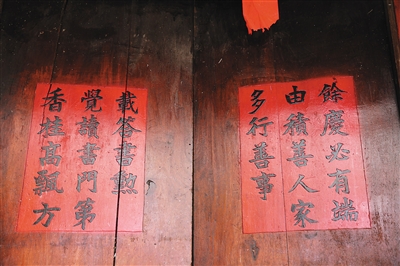 餘慶必有端
由積善人家
多行善事
香桂高飄方
覺讀書門第
載答書勲